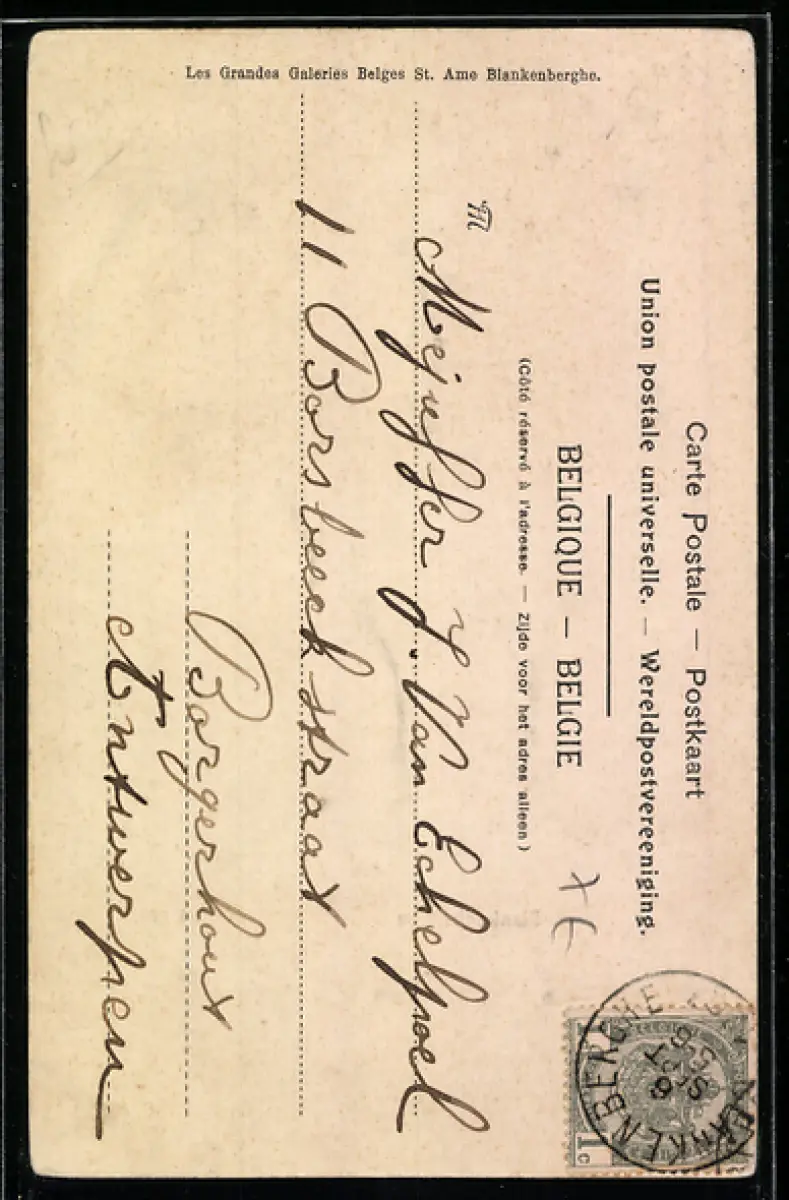 Les Grandes Galeries Belges St. Ame Blankenberghe.
Carte Postale — Postkaart
Union postale universelle. — Wereldpostvereeniging.
BELGIQUE — BELGIE
(Côté réservé à l'adresse. — Zijde voor het adres alleen)
M
Mejuffer J. Van Echelpoel
11 Borsbeeck straat
Borgerhout
Antwerpen
BLANKENBERGHE
6
SEPT
1c